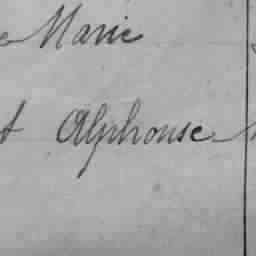 e Marie
t Alphonse